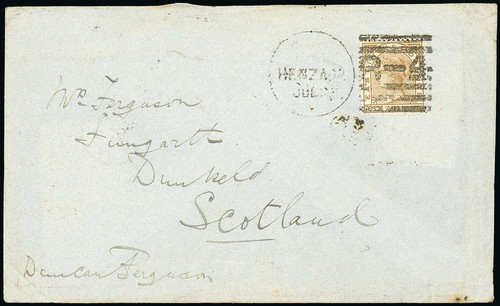 HENZADA
JUL
Mr Ferguson
Fungarth
Dunkeld
Scotland
Duncan Ferguson